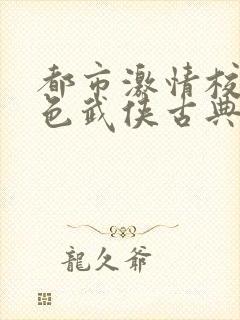 都市激情校
色武侠古典
龍久爺